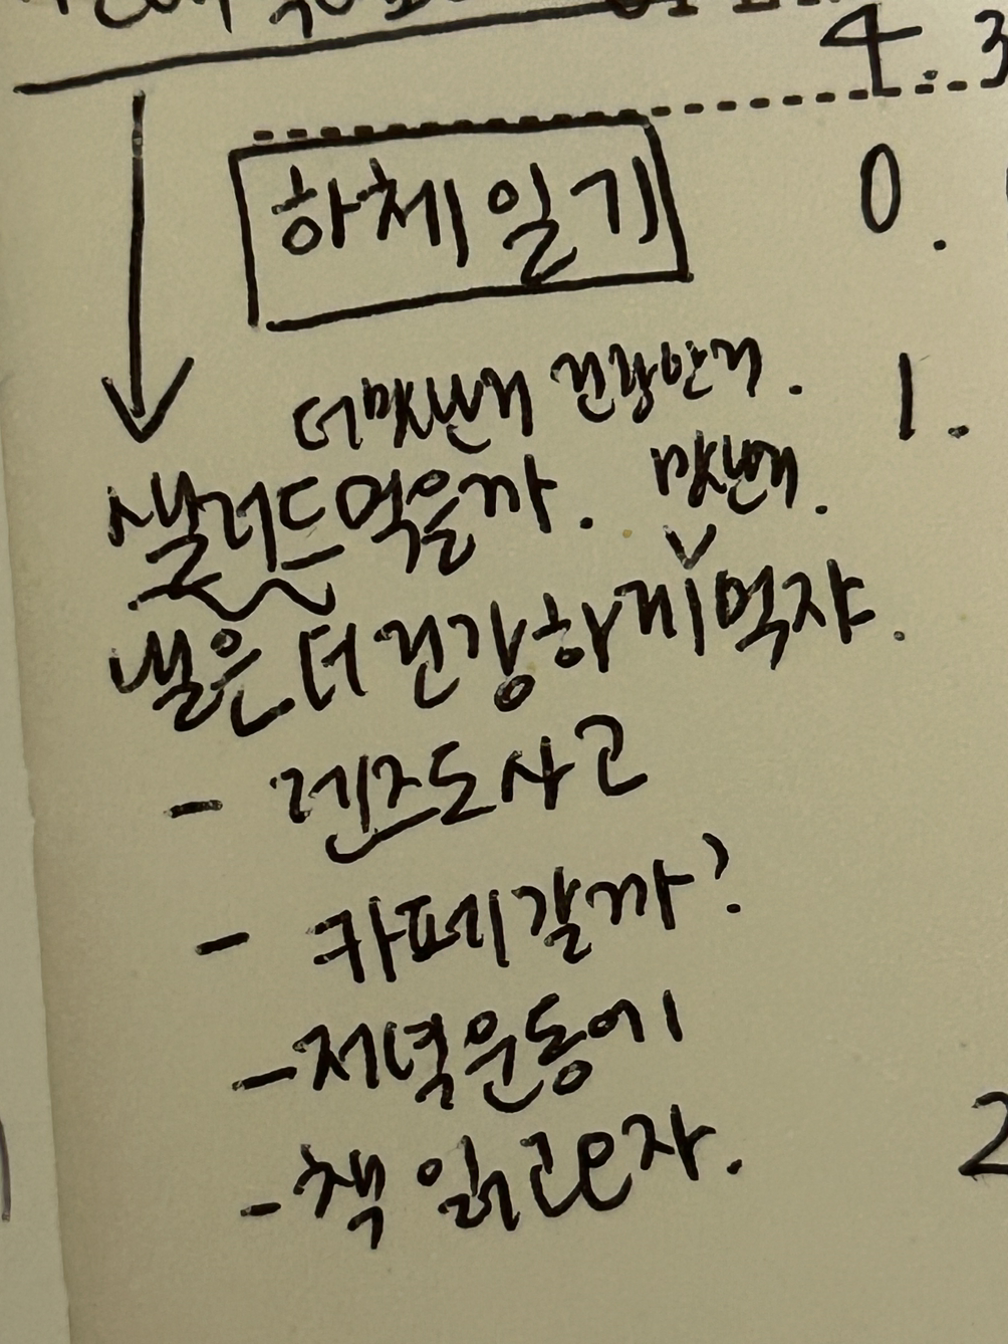 4. 3
하체일기
0.
더맛난거 건강한거.
1.
샐러드먹을까. 맛난거.
낼은더건강하게먹자.
- 렌즈도사고
- 카페갈까?
- 저녁운동에
- 책 읽고자.
2